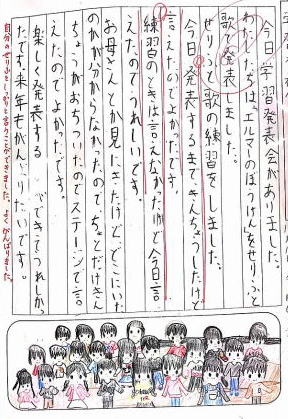 今日、学習発表会がありました。
わたしたちは、「エルマーのぼうけん」をせりふと
歌で発表しました。
せりふと歌の練習をしました。
今日、発表するまできんちょうしたけど
言えたのでよかったです。
練習のときは言えなかったけど今日、言
えたのでうれしいです。
お母さんが見にきたけど、どこにいた
のかが分からなかったので、ちょっとだけきん
ちょうがおちついたのでステージで言
えたのでよかったです。
楽しく発表する
できてうれしかっ
たです。来年もがんばりたいです。
自分のせりふをしっかりと言うことができました。よくがんばりました。